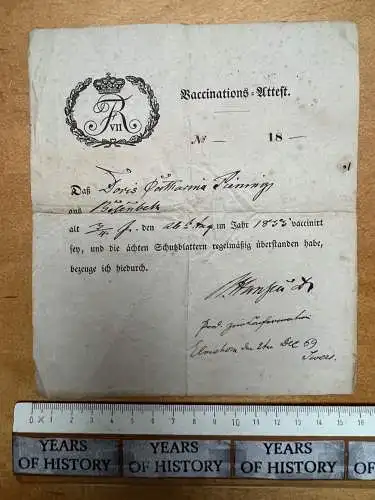 FR
VII
Vaccinations=Attest.
No — 18 —
Daß Doris Catharina
aus
alt ¾ J. den 26t Aug im Jahr 1833 vaccinirt
sey, und die ächten Schutzblattern regelmäßig überstanden habe,
bezeuge ich hiedurch.
Prod. zur Confirmation
Elmshorn den 2ten Dec 69
0 1 2 3 4 5 6 7 8 9 10 11 12 13 14 15 16
YEARS OF HISTORY
YEARS OF HISTORY
YEARS OF HISTORY